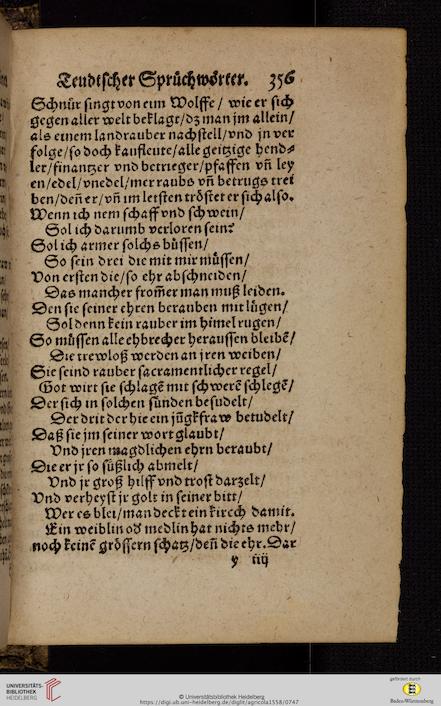 Teudtscher Sprüchwörter. 356
Schnür singt von eim Wolffe / wie er sich
gegen aller welt beklagt/dz man jm allein/
als einem landrauber nachstell/vnd jn ver
folge/so doch kauffleute/alle geitzige hend⸗
ler/finantzer vnd betrieger/pfaffen vñ ley
en/edel/vnedel/mer raubs vñ betrugs trei
ben/deñ er/vñ im letsten tröstet er sich also.
Wenn ich nem schaff vnd schwein/
Sol ich darumb verloren sein?
Sol ich armer solchs büssen/
So sein drei die mit mir müssen/
Von ersten die/so ehr abschneiden/
Das mancher from̃er man muß leiden.
Den sie seiner ehren berauben mit lügen/
Sol denn kein rauber im himel rugen/
So müssen alle ehbrecher heraussen bleibẽ/
Die trewloß werden an jren weiben/
Sie seind rauber sacramentlicher regel/
Got wirt sie schlagẽ mit schwerẽ schlegẽ/
Der sich in solchen sünden besudelt/
Der drit der hie ein jũgkfraw betudelt/
Daß sie jm seiner wort glaubt/
Vnd jren magdlichen ehrn beraubt/
Die er jr so süßlich abmelt/
Vnd jr groß hilff vnd trost darzelt/
Vnd verheyst jr golt in seiner bitt/
Wer es blei/man deckt ein kirch damit.
Ein weiblin od medlin hat nichts mehr/
noch keinẽ grössern schatz/deñ die ehr. Dar
y iiij
UNIVERSITÄTS-
BIBLIOTHEK
HEIDELBERG
© Universitätsbibliothek Heidelberg
https://digi.ub.uni-heidelberg.de/diglit/agricola1558/0747
gefördert durch
Baden-Württemberg